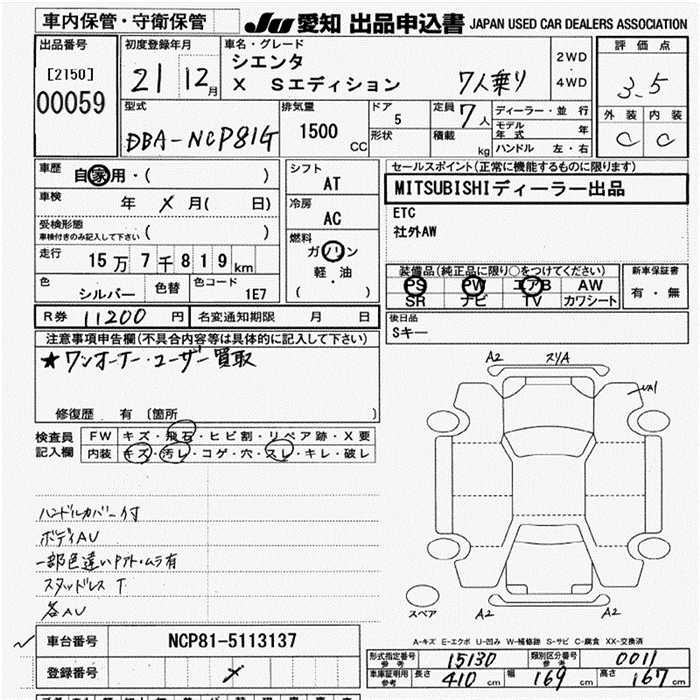 車内保管・守衛保管
JU 愛知 出品申込書 JAPAN USED CAR DEALERS ASSOCIATION
出品番号
[2150]
00059
初度登録年月
21 12月
車名・グレード
シエンタ
X Sエディション 7人乗り
2WD
・
4WD
評価点
3.5
外装 内装
C C
型式
DBA-NCP81G
排気量
1500 CC
ドア
5
形状
定員
7人
積載 kg
ディーラー・並行
モデル年式 年
ハンドル 左・右
車歴
自家用・( )
車検 年 メ 月( 日)
受検形態
車検付きのみ記入して下さい ( )
走行
15万7千819km
色 シルバー 色替 色コード 1E7
シフト
AT
冷房
AC
燃料
ガソリン
軽・油
( )
セールスポイント(正常に機能するものに限ります)
MITSUBISHIディーラー出品
ETC
社外AW
装備品(純正品に限り○をつけてください)
PS PW エアB AW
SR ナビ TV カワシート
新車保証書
有・無
後日品
Sキー
R券 11200円 名変通知期限 月 日
注意事項申告欄(不具合内容等は具体的に記入して下さい)
★ワンオーナー・ユーザー買取
修復歴 有 〔箇所 〕
検査員
記入欄
FW キズ・飛石・ヒビ割・リペア跡・X要
内装 キズ・汚レ・コゲ・穴・スレ・キレ・破レ
ハンドルカバー付
ボディAU
一部色違いタアト・ムラ有
スタッドレス T
各AU
A2 スリA
A2 A2
スペア
A-キズ E-エクボ U-凹み W-補修跡 S-サビ C-腐食 XX-交換済
車台番号 NCP81-5113137
登録番号 メ
形式指定番号
参考
15130
類別区分番号
参考
0011
車庫証明用
参考
長さ 410 cm 幅 169 cm 高さ 167 cm